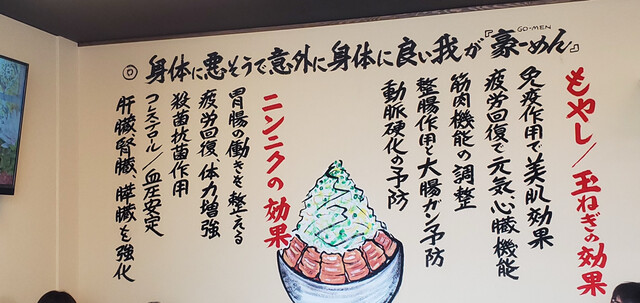 ◎身体に悪そうで意外に身体に良い我が『豪ーめん』
GO-MEN
もやし/玉ねぎの効果
免疫作用で美肌効果
疲労回復で元気心臓機能
筋肉機能の調整
整腸作用と大腸ガン予防
動脈硬化の予防
ニンニクの効果
胃腸の働きを整える
疲労回復、体力増強
殺菌抗菌作用
コレステロール/血圧安定
肝臓、腎臓、膵臓を強化